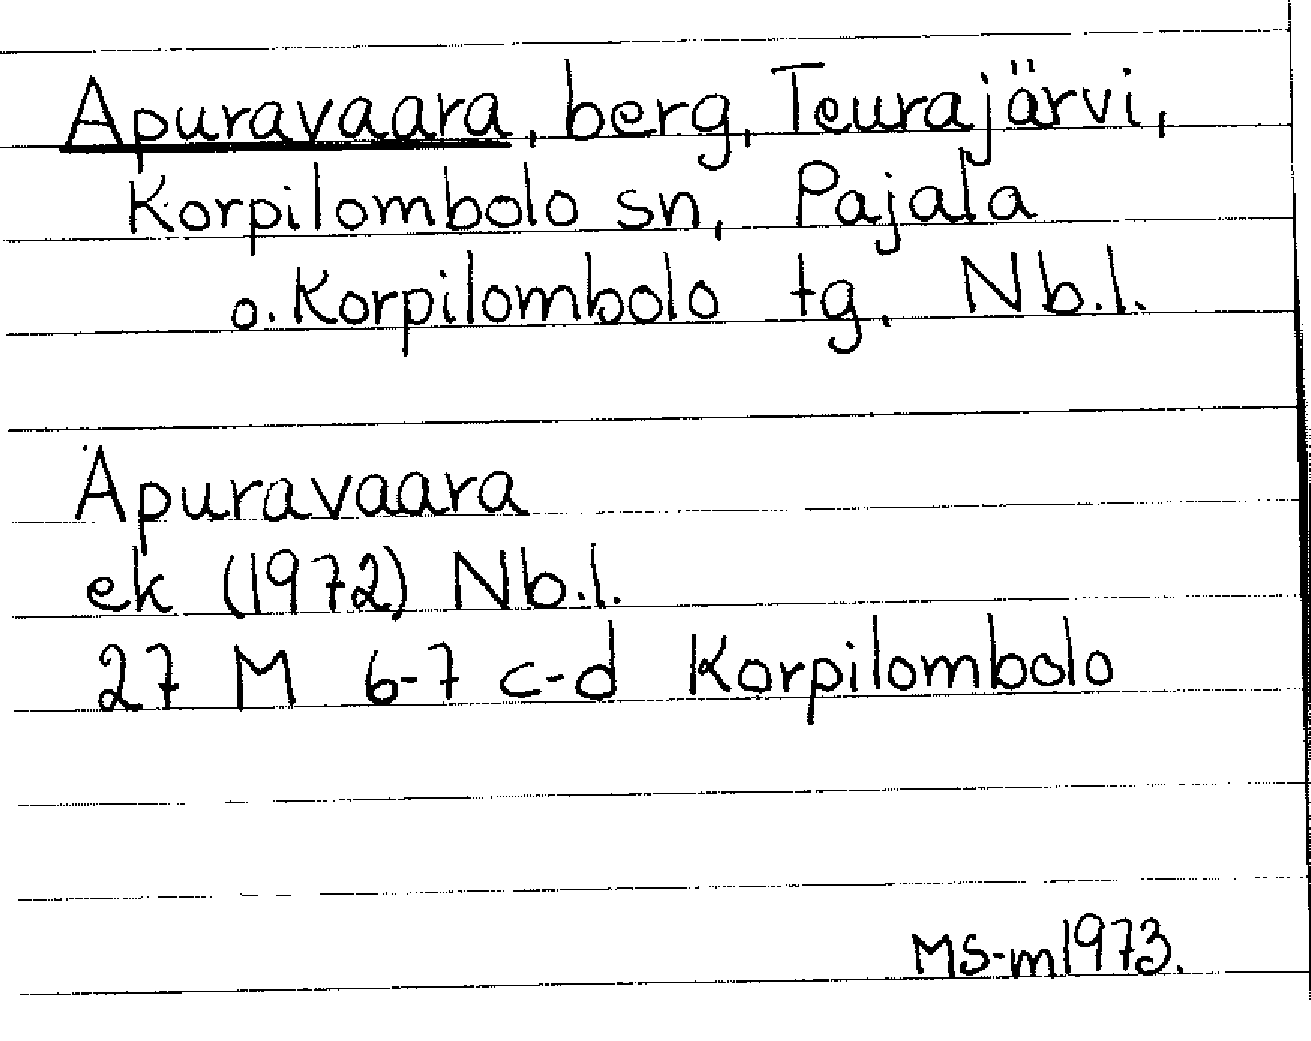 Apuravaara, berg, Teurajärvi,
Korpilombolo sn, Pajala
o. Korpilombolo tg, Nb.l.
Apuravaara
ek (1972) Nb.l.
27 M 6-7 c-d Korpilombolo
MS-m1973.